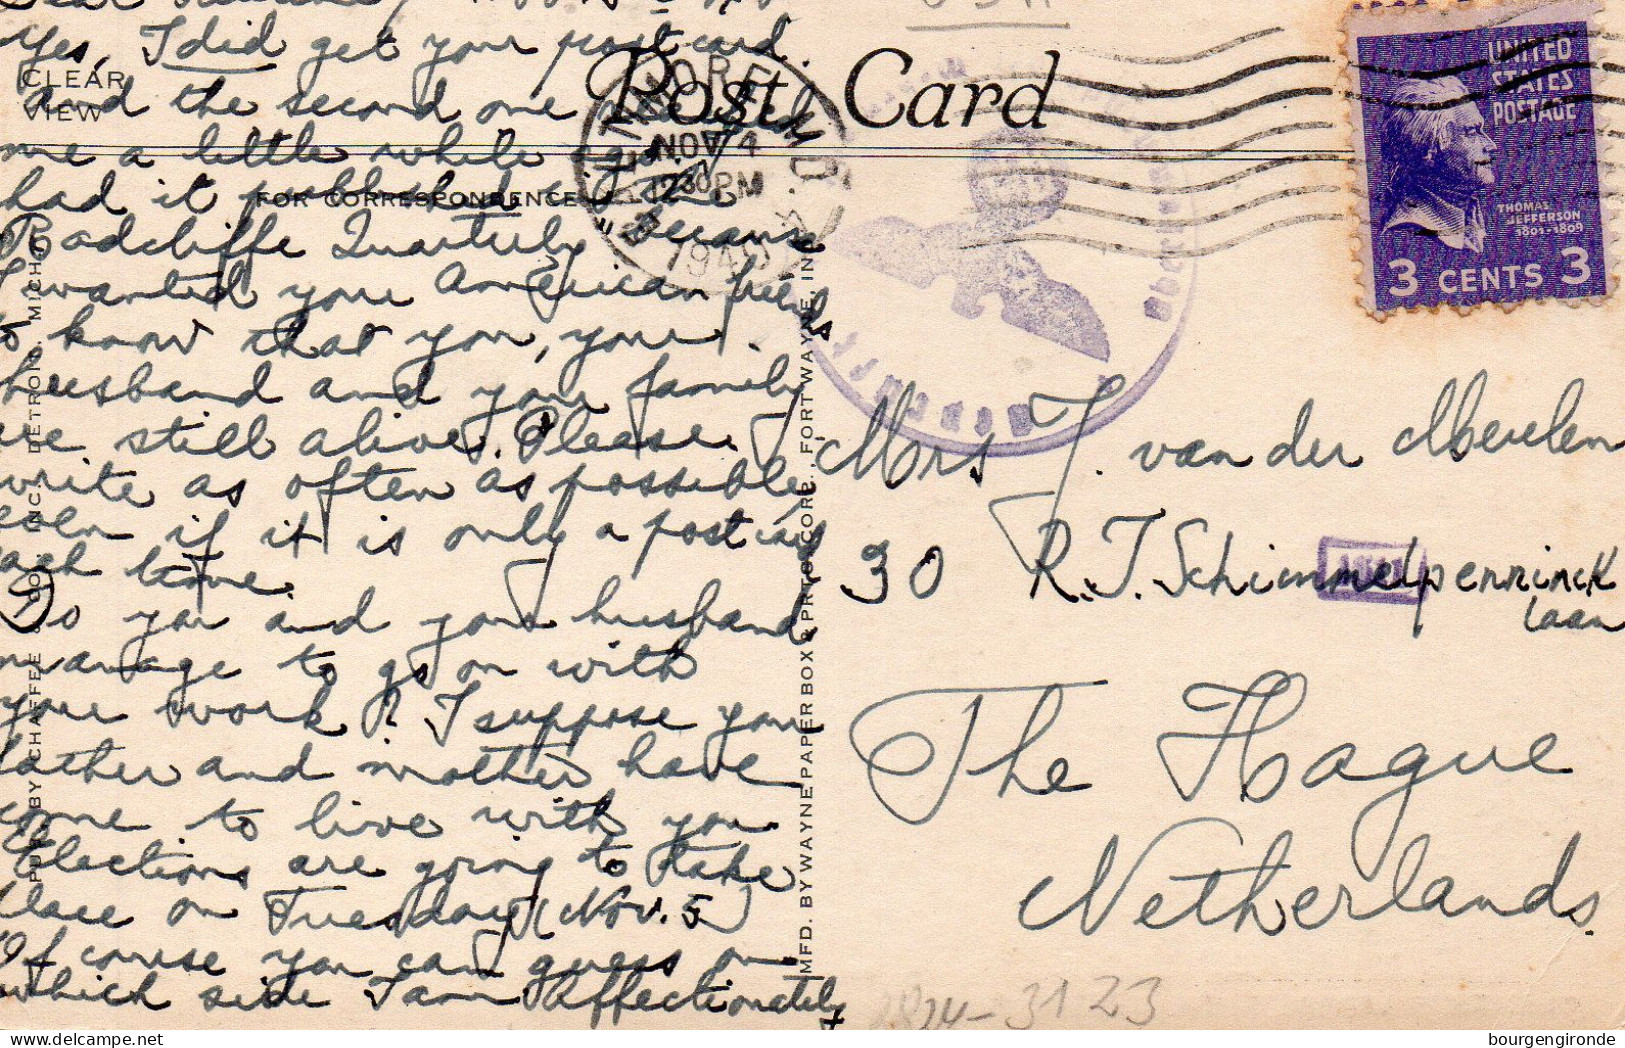 Yes, I did get your post card
and the second one
me a little while ago. I
had it published in the
"Radcliffe Quarterly" because
I wanted your American friends
to know that you, your
husband and your family
are still alive. Please
write as often as possible,
even if it is only a post card
each time.
Do you and your husband
manage to go on with
your work? I suppose your
father and mother have
come to live with you.
Elections are going to take
place on Tuesday (Nov. 5)
Of course you can guess on
which side I am. Affectionately
CLEAR
VIEW
Post Card
FOR CORRESPONDENCE
BALTIMORE MD
NOV 4
12 30 PM
1940
UNITED
STATES
POSTAGE
THOMAS
JEFFERSON
1801-1809
3 CENTS 3
PUB. BY CHAFFEE & CO., INC., DETROIT, MICH.
MFD. BY WAYNE PAPER BOX & PRTG. CORP., FORT WAYNE, IND.
Mrs J. van der Meulen
30 R. J. Schimmelpenninck
laan
The Hague
Netherlands.
3123
bourgengironde